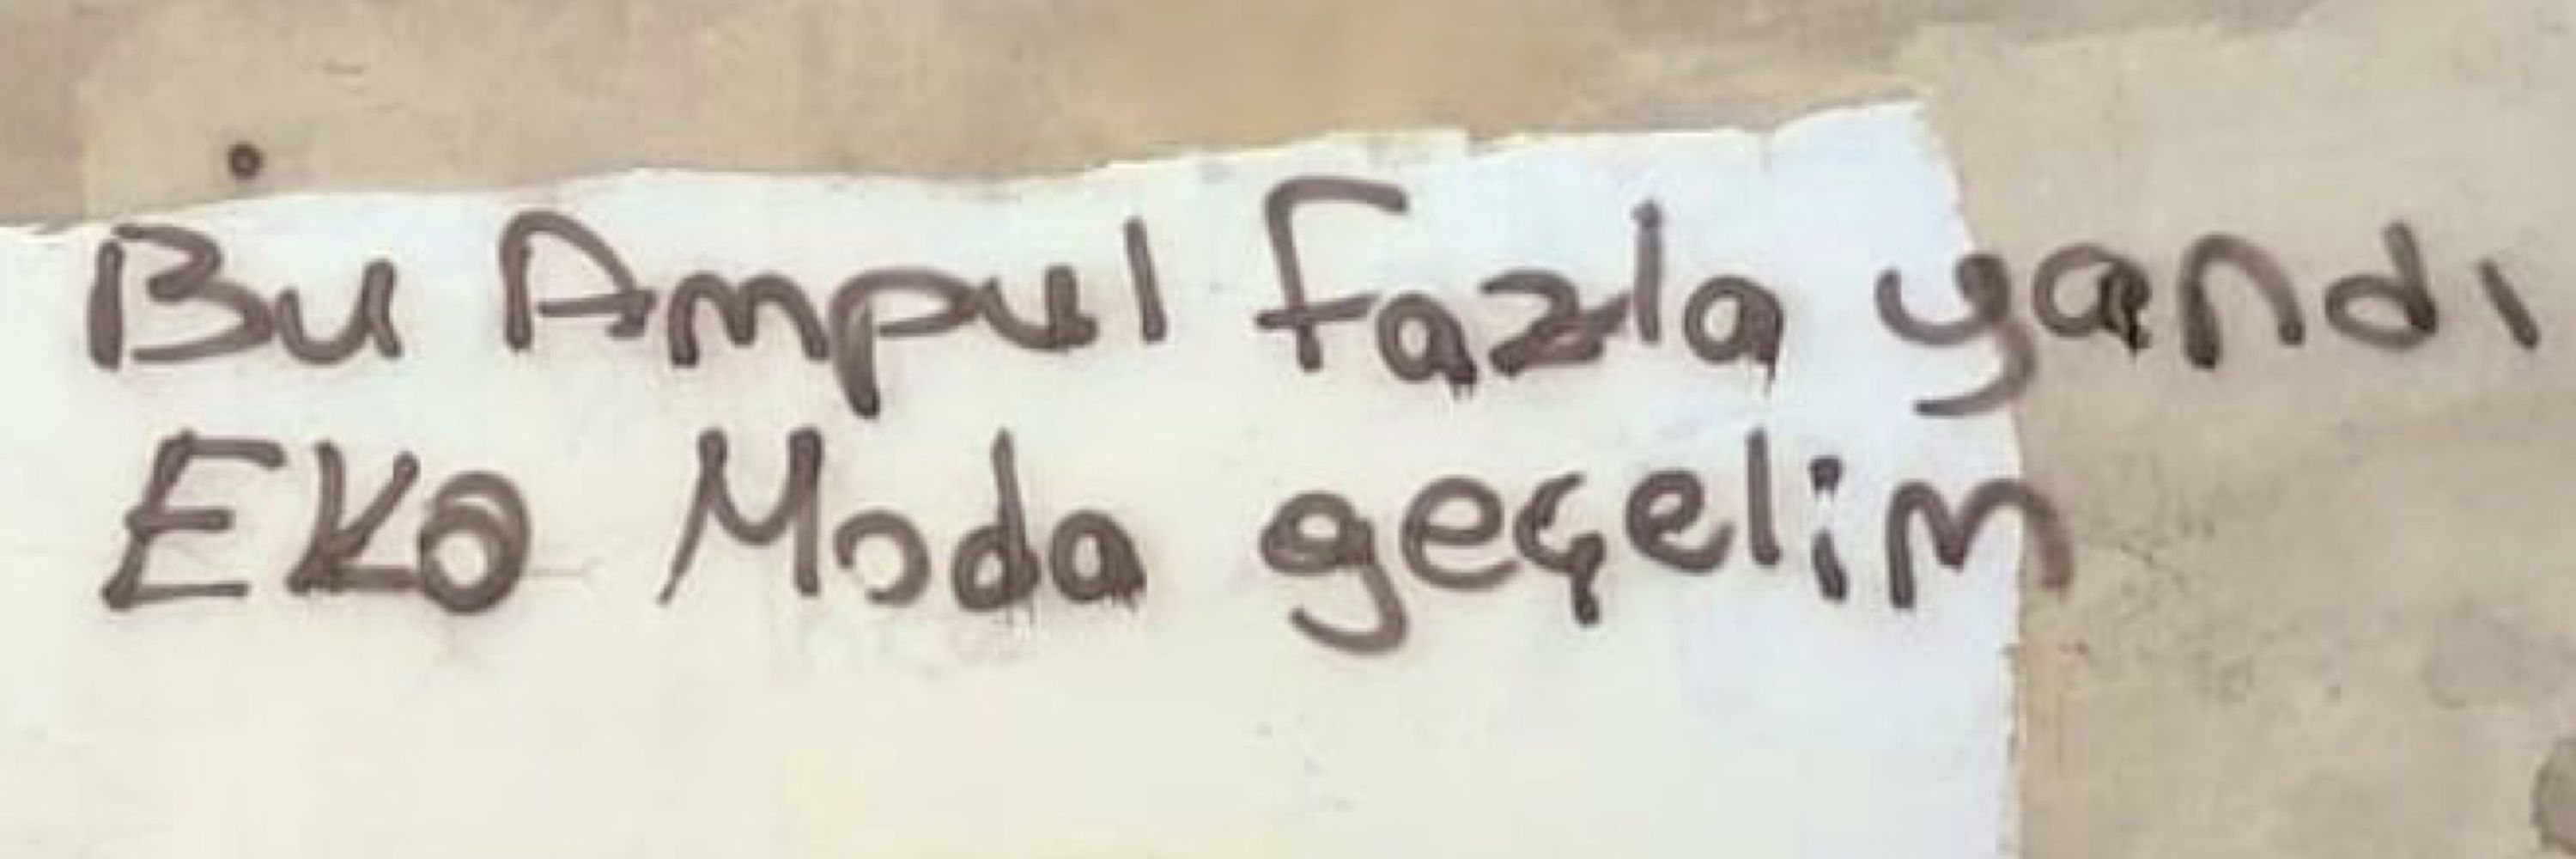 Bu Ampul fazla yandı
EKO Moda geçelim